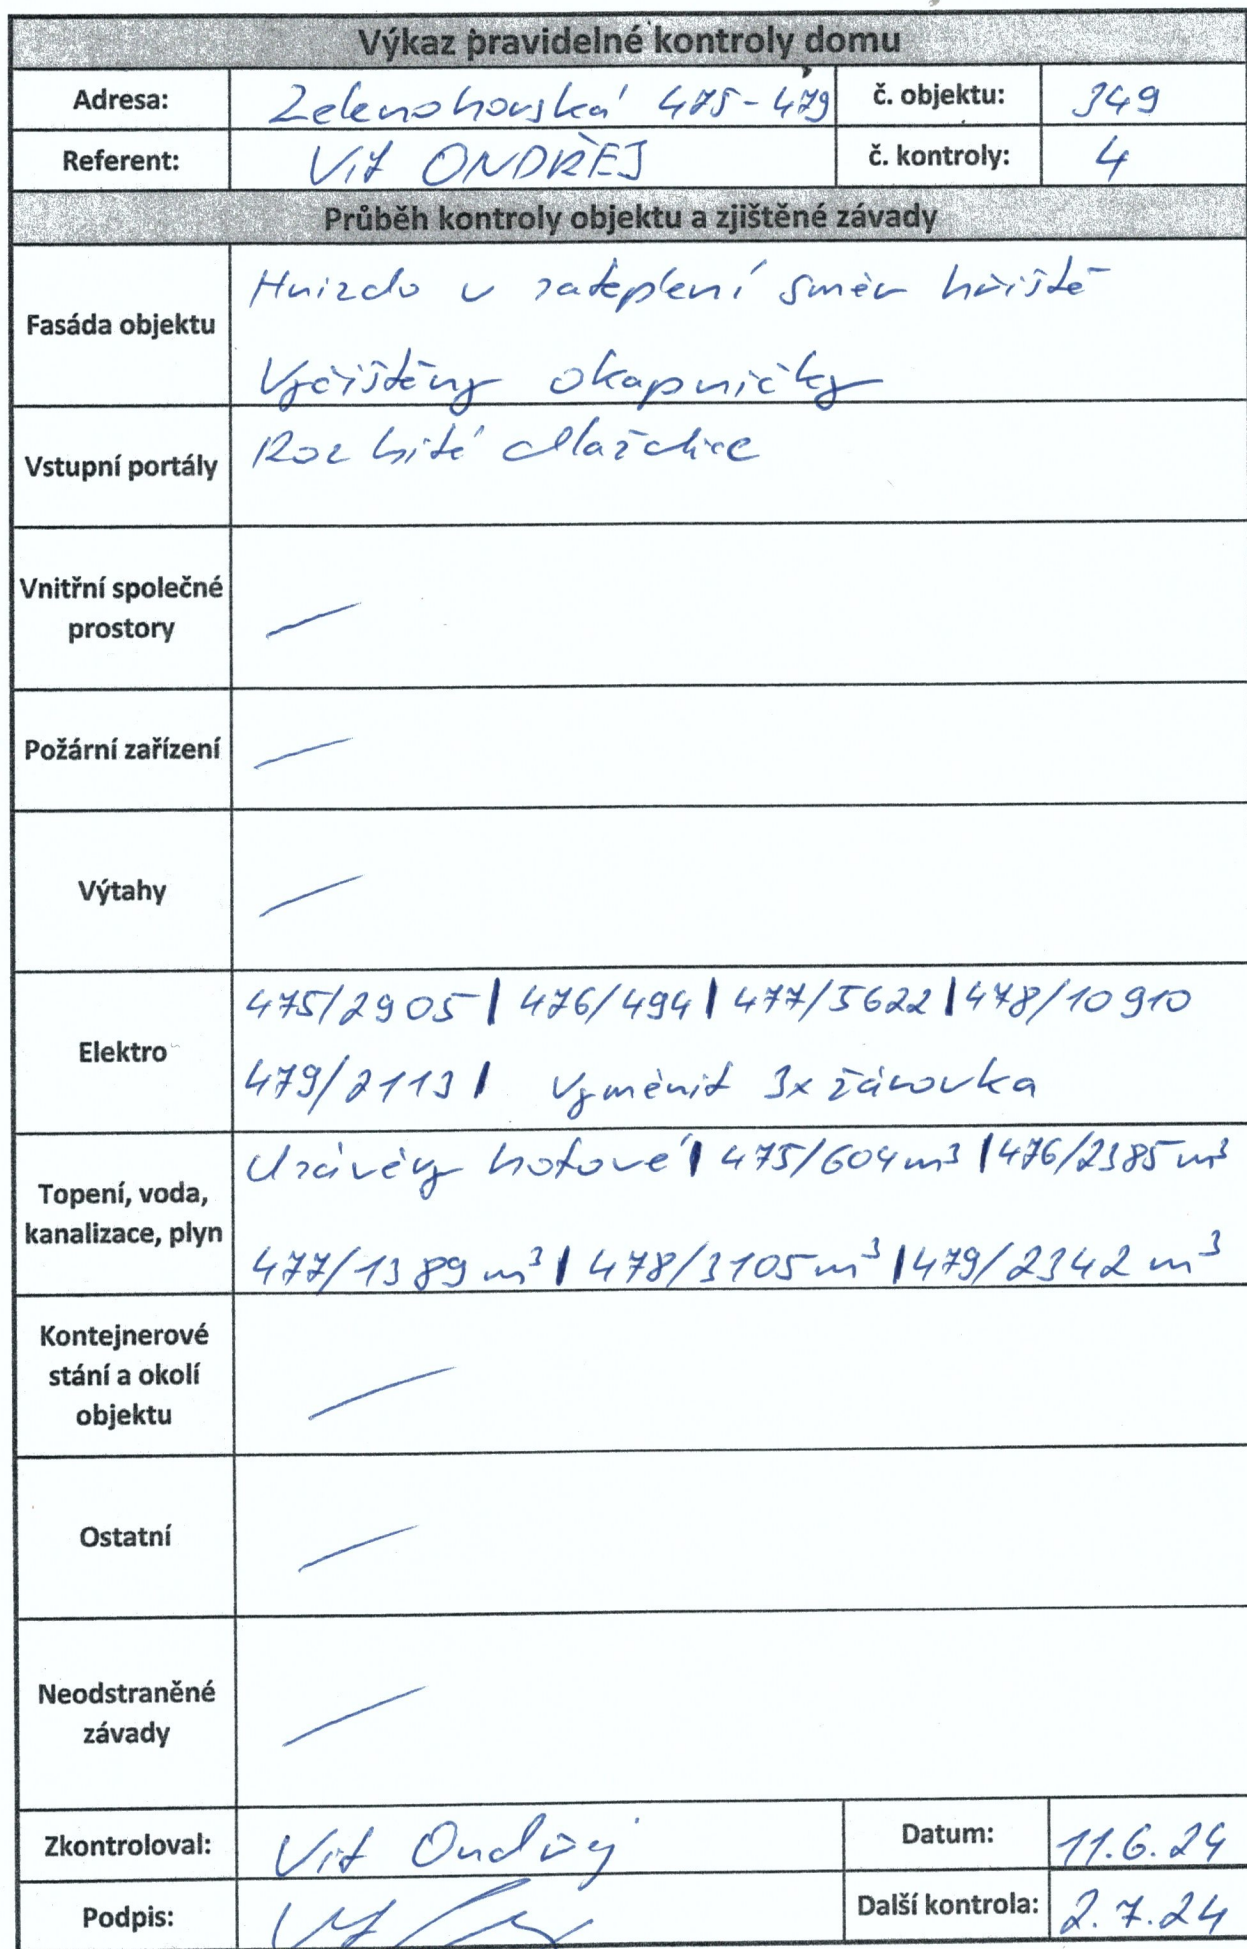 Výkaz pravidelné kontroly domu
Adresa: Zelenohorská 475-479 č. objektu: 349
Referent: Vít ONDŘEJ č. kontroly: 4
Průběh kontroly objektu a zjištěné závady
Fasáda objektu
Hnizdo v zateplení směr hřiště
Vyčištěny okapničky
Vstupní portály
Rozbité dlaždice
Vnitřní společné
prostory
—
Požární zařízení —
Výtahy —
Elektro
475/2905 | 476/494 | 477/5622 | 478/10910
479/2113 | Vyměnit 3x žárovka
Topení, voda,
kanalizace, plyn
hotové | 475/604 m³ | 476/2385 m³
477/1389 m³ | 478/3105 m³ | 479/2342 m³
Kontejnerové
stání a okolí
objektu
—
Ostatní —
Neodstraněné
závady
—
Zkontroloval: Vít Ondřej Datum: 11.6.24
Podpis: Další kontrola: 2.7.24